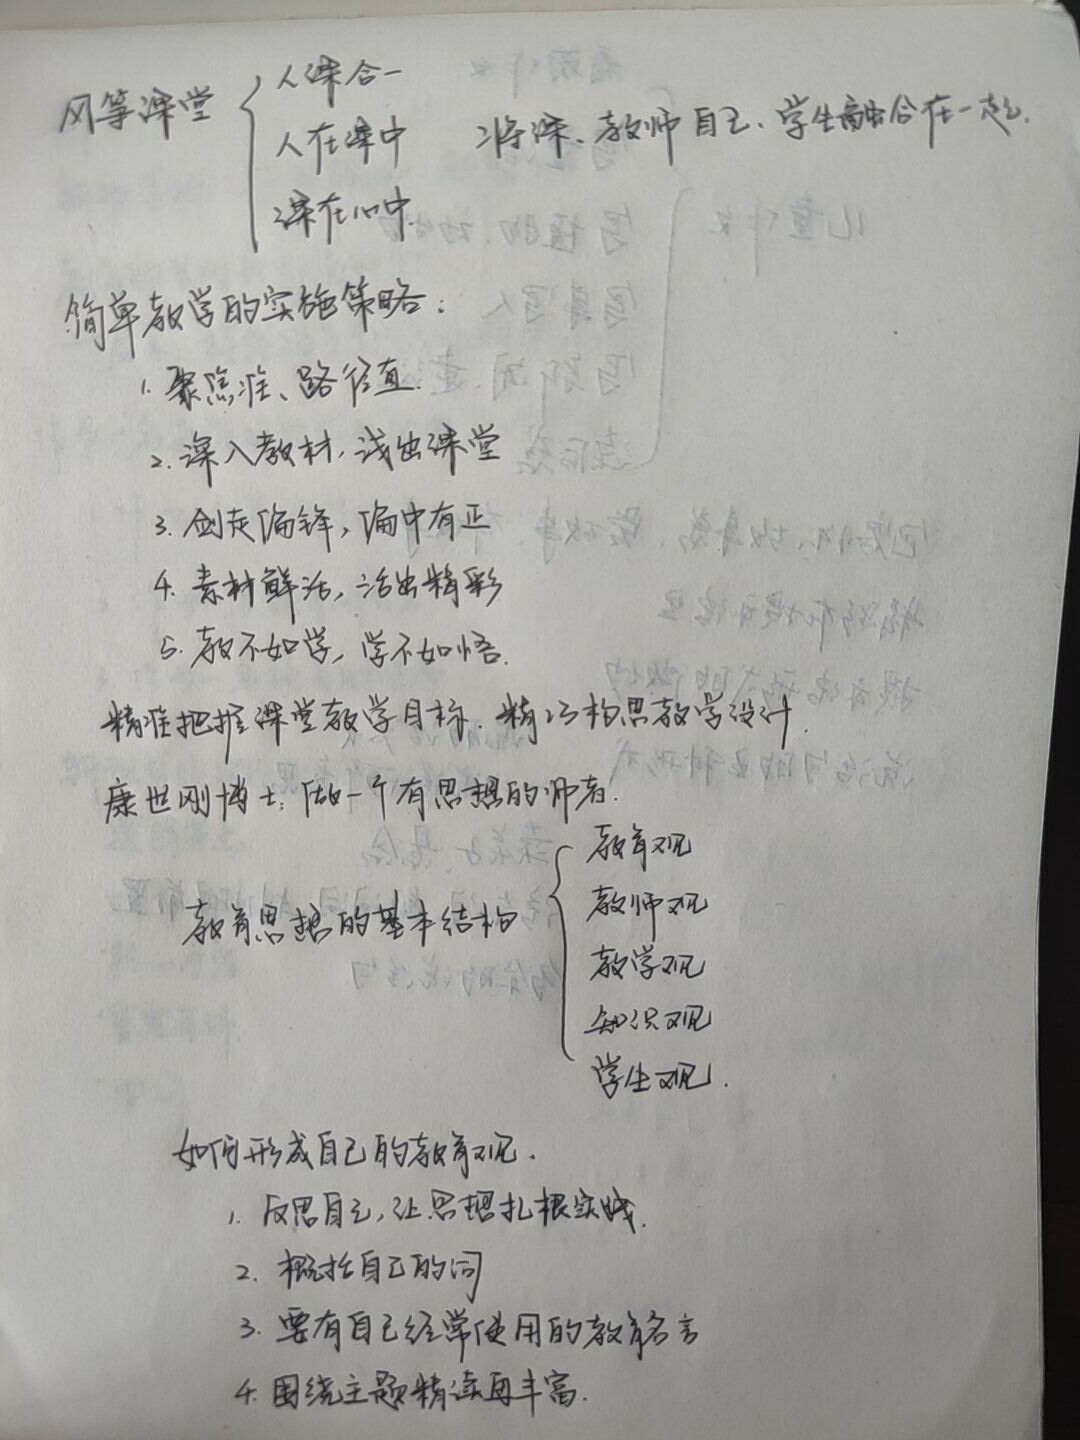 风等课堂
人课合一
人在课中 将课、教师自己、学生融合在一起.
课在心中.
简单教学的实施策略:
1. 聚焦准、路径直.
2. 深入教材, 浅出课堂
3. 剑走偏锋, 偏中有正
4. 素材鲜活, 活出精彩
5. 教不如学, 学不如悟.
精准把握课堂教学目标. 精巧构思教学设计.
康世刚博士: 做一个有思想的师者.
教育观
教师观
教育思想的基本结构
教学观
知识观
学生观.
如何形成自己的教育观.
1. 反思自己, 让思想扎根实践.
2. 概括自己的词
3. 要有自己经常使用的教育名言
4. 围绕主题精读再丰富.